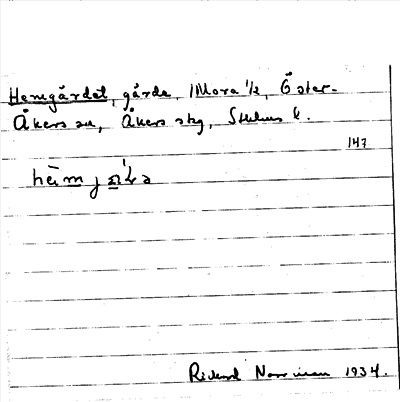 Hemgärdet, gärde, Mora ½, Öster-
Åkers sn, Åkers skg, Sthlms l.
147
Rickard Norrman 1934.